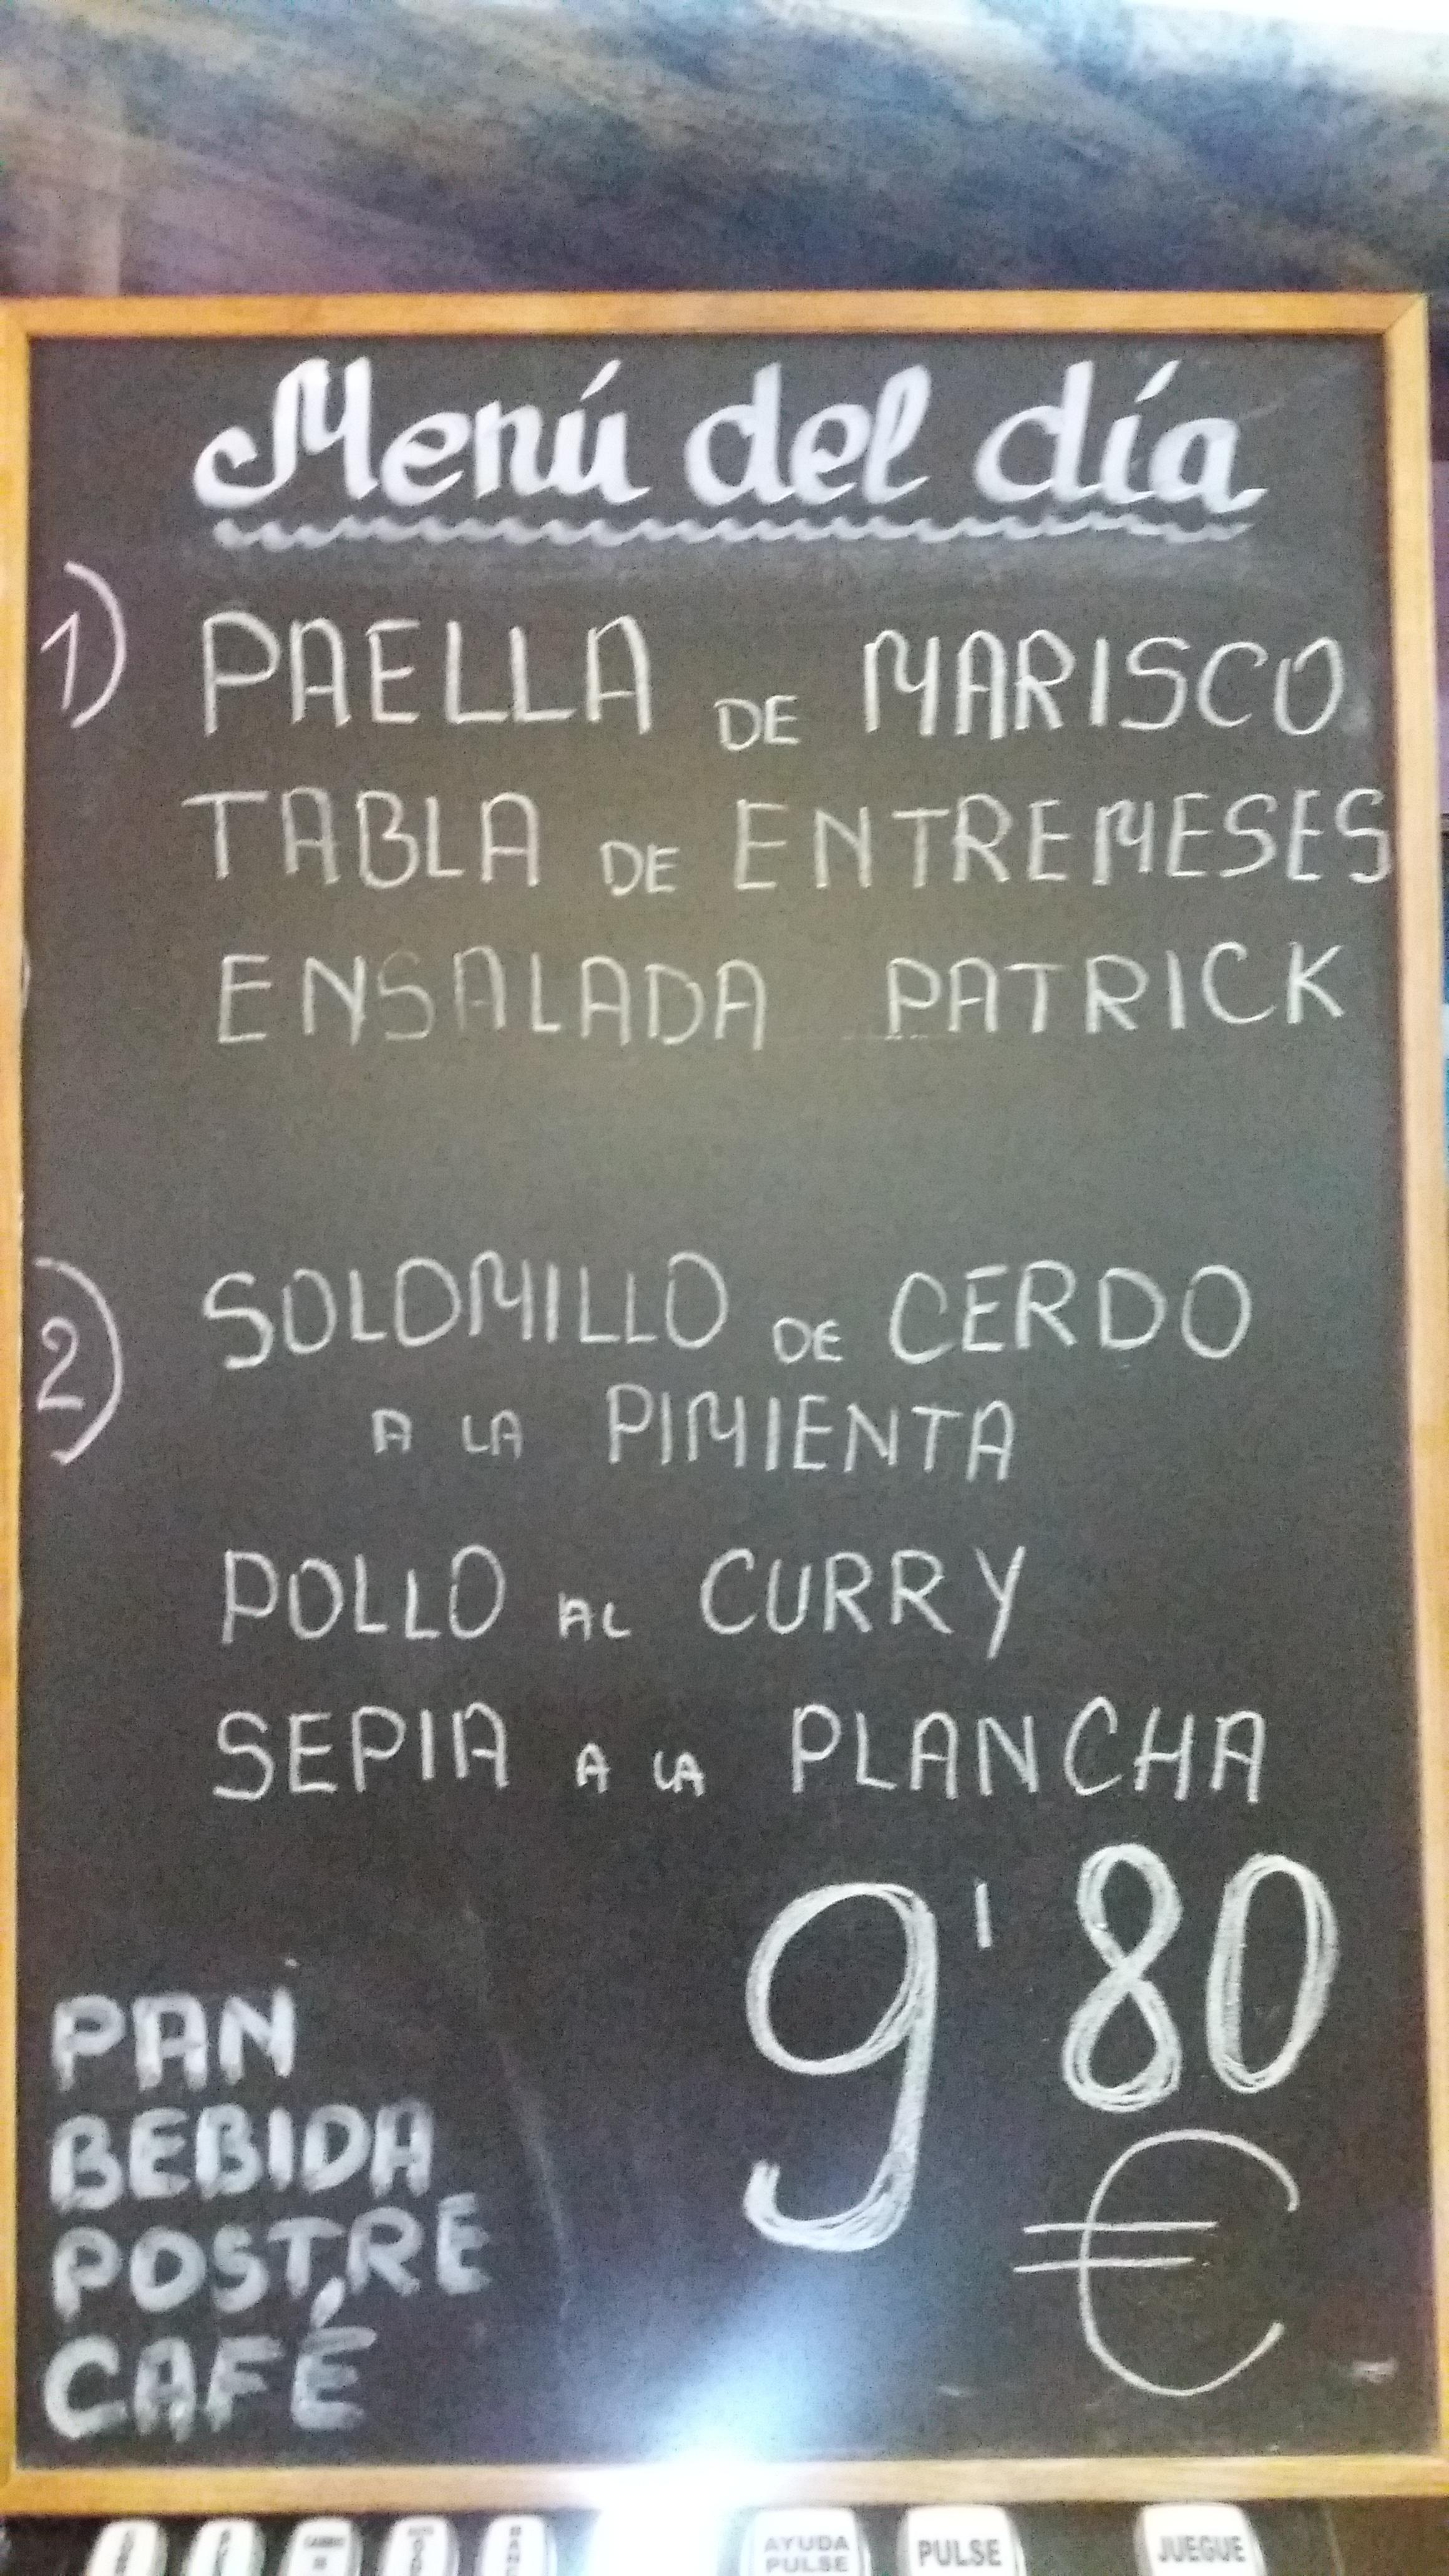 Menú del día
1) PAELLA DE MARISCO
TABLA DE ENTREMESES
ENSALADA PATRICK
2) SOLOMILLO DE CERDO
A LA PIMIENTA
POLLO AL CURRY
SEPIA A LA PLANCHA
9'80
€
PAN
BEBIDA
POSTRE
CAFÉ
AYUDA
PULSE
PULSE
JUEGUE